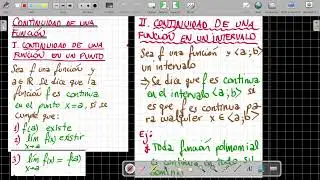 CONTINUIDAD DE UNA
FUNCIÓN
I. CONTINUIDAD DE UNA
FUNCIÓN EN UN PUNTO
Sea f una función y
a ∈ R. Se dice que la
función f es continua
en el punto x=a, si se
cumple que:
1) f(a) existe
2) lim f(x) existir
x→a
3) lim f(x) = f(a)
x→a
II. CONTINUIDAD DE UNA
FUNCIÓN EN UN INTERVALO
Sea f una función y <a;b>
un intervalo
⇒ Se dice que f es continua
en el intervalo <a;b> si
es que f es continua pa
ra cualquier x ∈ <a;b>
Ej:
Toda función polinomial
es continua en todo su
dominio